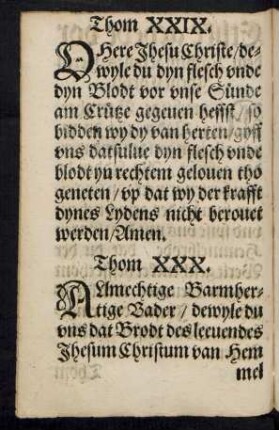 Thom XXIX.
O Here Jhesu Christe / de-
wyle du dyn flesch vnde
dyn Blodt vor vnse Sünde
am Crütze gegeuen heffst / so
bidden wy dy van herten / gyff
vns datsulue dyn flesch vnde
blodt yn rechtem gelouen tho
geneten / vp dat wy der krafft
dynes Lydens nicht berouet
werden / Amen.
Thom XXX.
ALmechtige Barmher-
tige Vader / dewyle du
vns dat Brodt des leeuendes
Jhesum Christum van Hem
mel